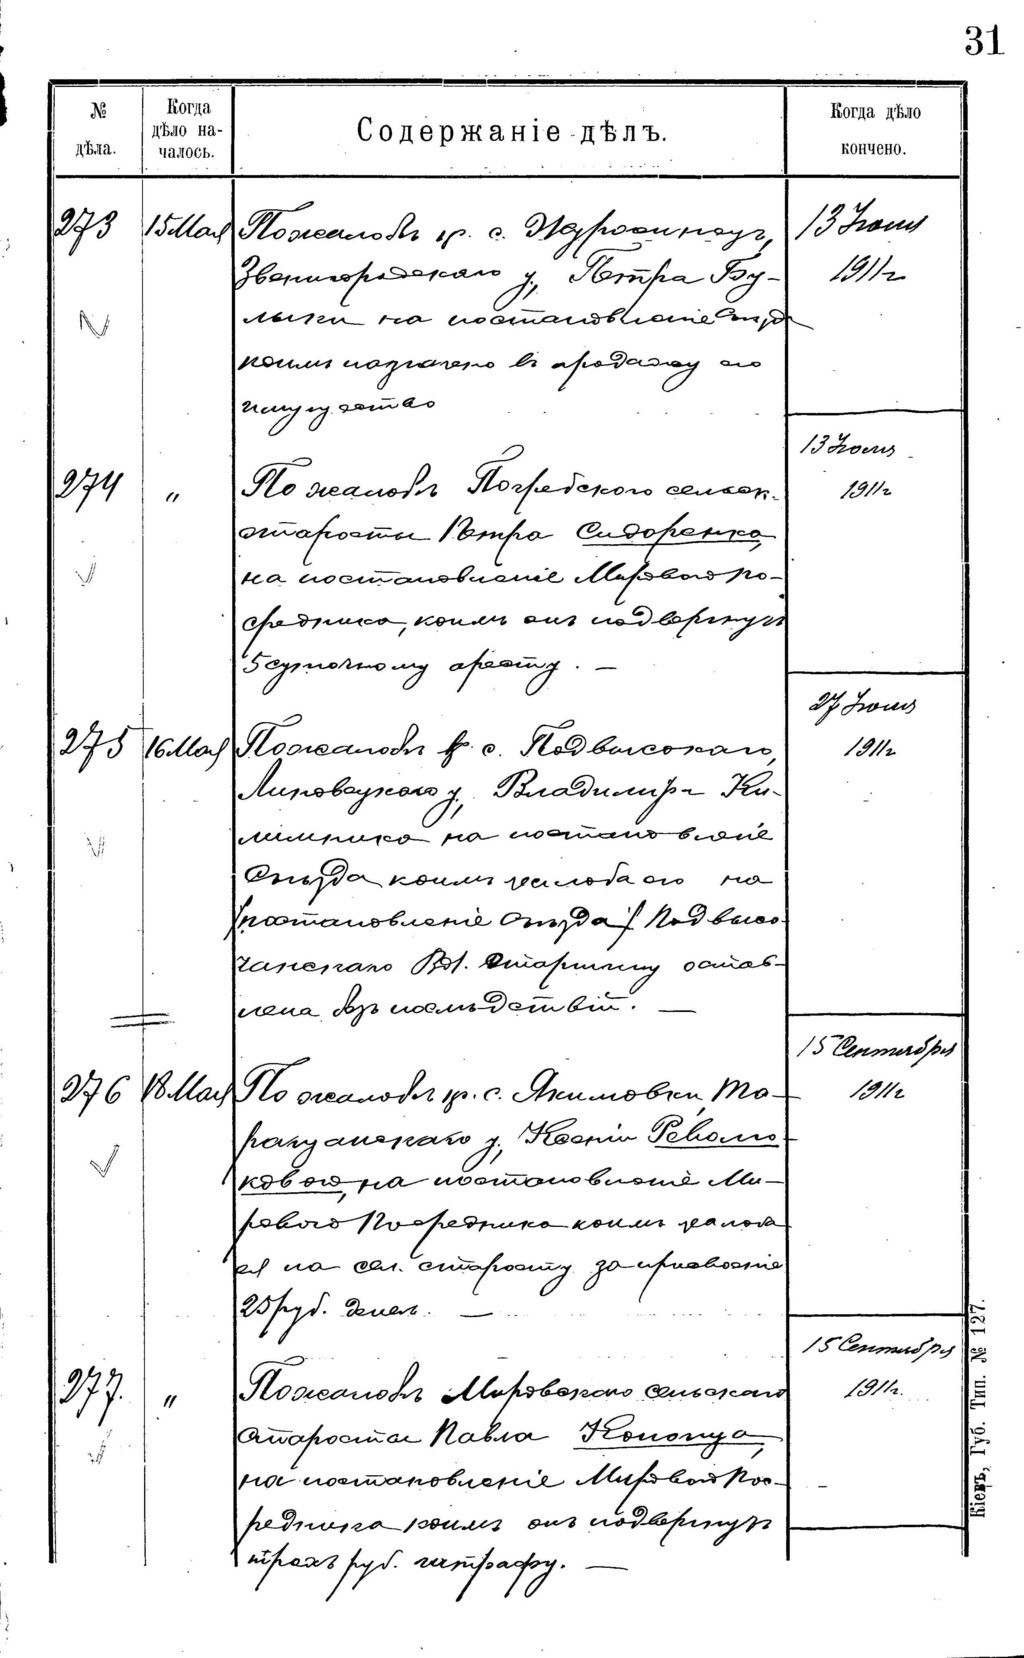 31
№ дѣла.
Когда дѣло началось.
Содержаніе дѣлъ.
Когда дѣло кончено.
273
15 Мая
По жалобѣ кр. с.
Звенигородскаго у., Петра Бу-
лыги на постановленіе Съѣзда
коимъ назначено въ продажу его
имущество
13 Іюня
1911 г
274
"
По жалобѣ Погребского сельск.
старосты Петра Сидоренка,
на постановленіе Мирового По-
средника, коимъ онъ подвергнутъ
5 суточному аресту. —
13 Іюня
1911 г
275
16 Мая
По жалобѣ кр. с. Подвысокаго,
Липовецкаго у., Владимира Ки-
лимника на постановленіе
Съѣзда коимъ жалоба его на
/постановленіе Съѣзда/ Подвысо-
чанскаго Вол. Старшину остав-
лена безъ послѣдствій. —
27 Іюня
1911 г
276
18 Мая
По жалобѣ кр. с. Якимовки, Та-
ращанскаго у., Ксеніи
на постановленіе Ми-
рового Посредника коимъ жалоба
ея на сел. старосту за присвоеніе
25 руб. денег. —
15 Сентября
1911 г
277.
"
По жалобѣ Мировского сельскаго
Старосты Павла
на постановленіе Мирового Пос-
редника коимъ онъ подвергнутъ
трехъ руб. штрафу. —
15 Сентября
1911 г.
Кіевъ, Губ. Тип. № 127.